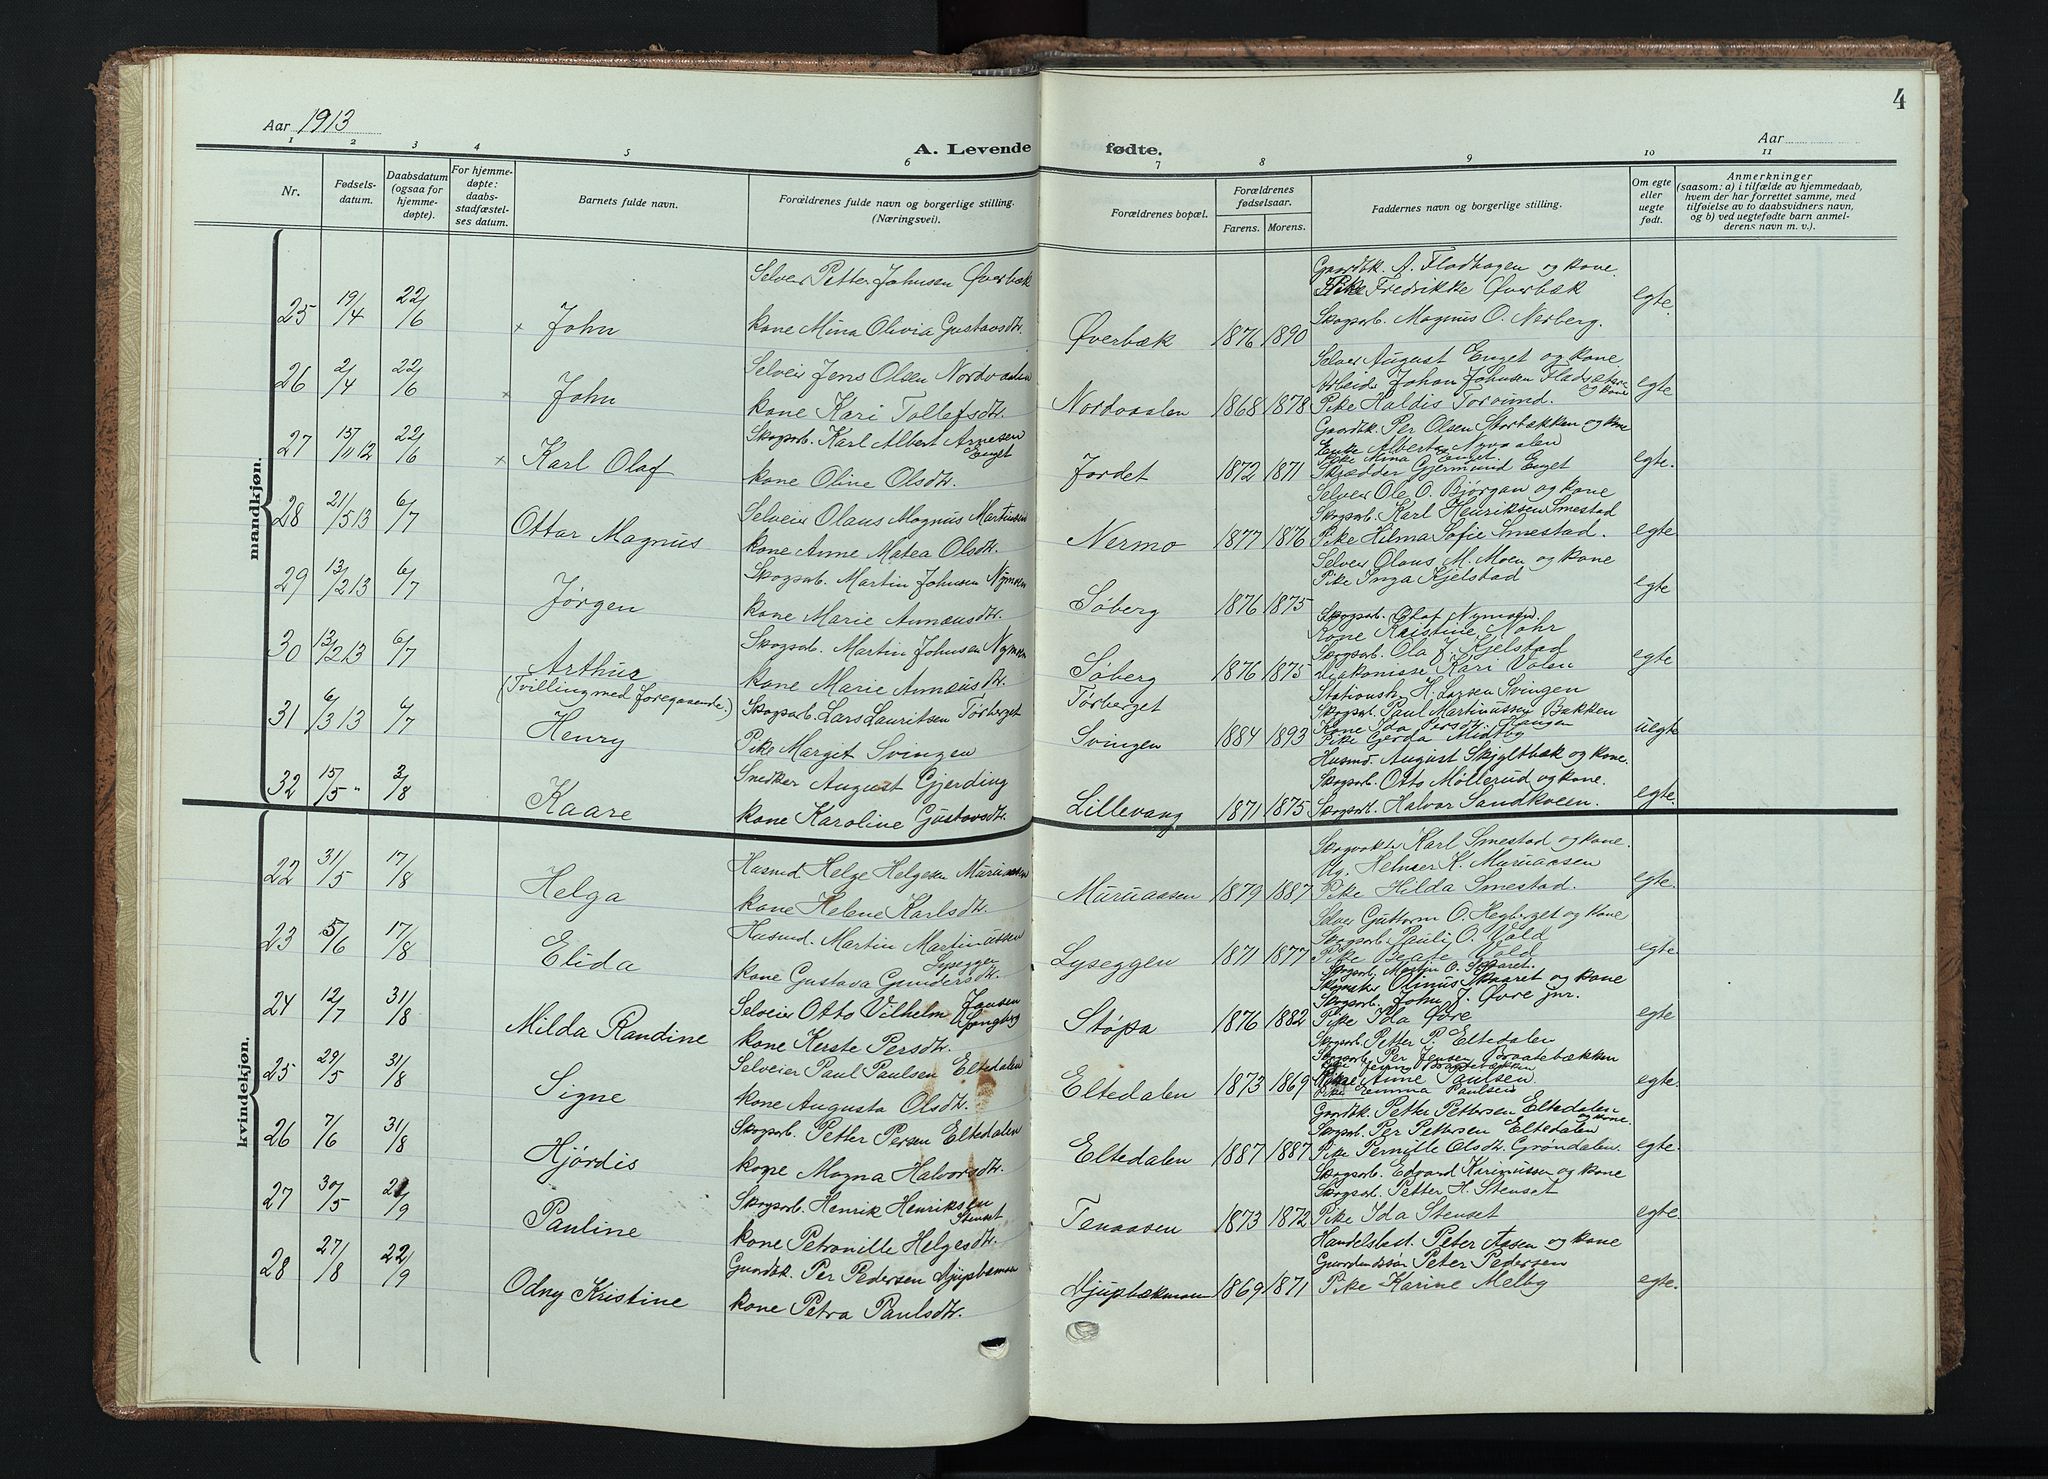 4
Aar 1913
Aar
A. Levende fødte.
1 2 3 4 5 6 7 8 9 10 11
Nr.
Fødsels-
datum.
Daabsdatum
(ogsaa for
hjemme-
døpte).
For hjemme-
døpte:
daabs-
stadfæstel-
ses datum.
Barnets fulde navn.
Forældrenes fulde navn og borgerlige stilling.
(Næringsvei).
Forældrenes bopæl.
Forældrenes
fødselsaar.
Farens. Morens.
Faddernes navn og borgerlige stilling.
Om egte
eller
uegte
født.
Anmerkninger
(saasom: a) i tilfælde av hjemmedaab,
hvem der har forrettet samme, med
tilføielse av to daabsvidners navn,
og b) ved uegtefødte barn anmel-
derens navn m. v.).
mandkjøn.
25 19/4 22/6 x John
Selveier Petter Johnsen Øverbæk
kone Mina Olivia Gustavsdtr.
Øverbæk 1876 1890
Gaardbk. A. Flodhagen og kone.
Pike Fredrikke Øverbæk
Skogsarb. Magnus O. Nerberg.
egte.
26 2/4 22/6 x John
Selveier Jens Olsen Nordvaalen
kone Kari Tollefsdtr.
Nordvaalen 1868 1878
Selveier August Enget og kone
Arbeider Johan Johnsen
og kone
Pike Haldis Torvund.
egte
27 15/11 12 22/6 x Karl Olaf
Skogsarb. Karl Albert Arnesen
Enget
kone Oline Olsdtr.
Jordet 1872 1871
Gaardbk. Per Olsen Storbækken og kone
Enke Alberte Nyvaalen
Pike Mina Enget.
Skrædder Gjermund Enget
egte.
28 21/5 13 6/7 Ottar Magnus
Selveier Olaus Magnus Martinsen
kone Anne Matea Olsdtr.
Nermo 1877 1876
Selveier Ole O. Bjørgan og kone
Skogsarb. Karl Henriksen Smestad
Pike Hilma Sofie Smestad.
egte
29 13/2 13 6/7 Jørgen
Skogsarb. Martin Johnsen Nymoen
kone Marie Annæusdtr.
Søberg 1876 1875
Selveier Olaus M. Moen og kone
Pike Inga Kjelstad
egte
30 13/2 13 6/7 Arthur
(Tvilling med foregaaende.)
Skogsarb. Martin Johnsen Nymoen
kone Marie Annæusdtr.
Søberg 1876 1875
Skogsarb. Olaf Nymoen.
Kone Kristine Mohr
Skogsarb. Ola J. Kjelstad
Diakonisse Kari Volen
egte
31 6/3 13 6/7 Henry
Skogsarb. Lars Lauritsen Tørberget
Pike Margit Svingen
Tørberget
Svingen 1884 1893
H. Larsen Svingen
Skogsarb. Paul Martinussen Bakken
Kone Ida Persdtr. Haugen
Pike Gerda Midtby
uegte
32 15/5 " 3/8 Kaare
Snedker August Gjerding
kone Karoline Gustavsdtr.
Lillevang 1871 1875
Husmd. August Skjyltbæk og kone.
Skogsarb. Otto Møllerud og kone.
Skogsarb. Halvor Sandkveen.
egte.
kvindekjøn.
22 31/5 17/8 Helga
Husmd Helge Helgesen Muruaasen
kone Helene Karlsdtr.
Muruaasen 1879 1887
Skogvokter Karl Smestad og kone.
Ug. Helmer H. Muruaasen
Pike Hilda Smestad.
egte.
23 5/6 17/8 Elida
Husmd. Martin Martinussen
Lyseggen
kone Gustava Gundersdtr.
Lyseggen 1871 1877
Selveier Guttorm O. Hegberget og kone
Skogsarb. Pauli O. Vold
Pike Beate Vold
Skogsarb. Martin O. Skaaret.
egte.
24 12/7 31/8 Milda Randine
Selveier Otto Vilhelm Jansen
Ljungberg
kone Kerste Persdtr.
Støpa 1876 1882
Olinus Skaaret og kone
Skogsarb. John J. Øvre jnr.
Pike Ida Øvre
egte
25 29/5 31/8 Signe
Selveier Paul Paulsen Eltedalen
kone Augusta Olsdtr.
Eltedalen 1873 1869
Skogsarb. Petter P. Eltedalen
Skogsarb. Per Jensen Braatebækken
Pike Anne Paulsen
Pike Emma Paulsen
egte
26 7/6 31/8 Hjørdis
Skogsarb. Petter Persen Eltedalen
kone Magna Halvorsdtr.
Eltedalen 1887 1887
Gaardbk. Petter Pettersen Eltedalen
og kone.
Skogsarb. Per Pettersen Eltedalen
Pike Pernille Olsdtr. Grøndalen.
egte.
27 30/5 21/9 Pauline
Skogsarb. Henrik Henriksen
Stenset
kone Petronille Helgesdtr.
Tenaasen 1873 1872
Skogsarb. Edvard Karinussen og kone
Skogsarb. Petter H. Stenset
Pike Ida Stenset
egte.
28 27/8 22/9 Odny Kristine
Gaardbk. Per Pedersen Djupbækmoen
kone Petra Paulsdtr.
Djupbækmoen 1869 1871
Handelsbest. Peter Aasen og kone
Peter Pedersen
Pike Karine Melby
egte.